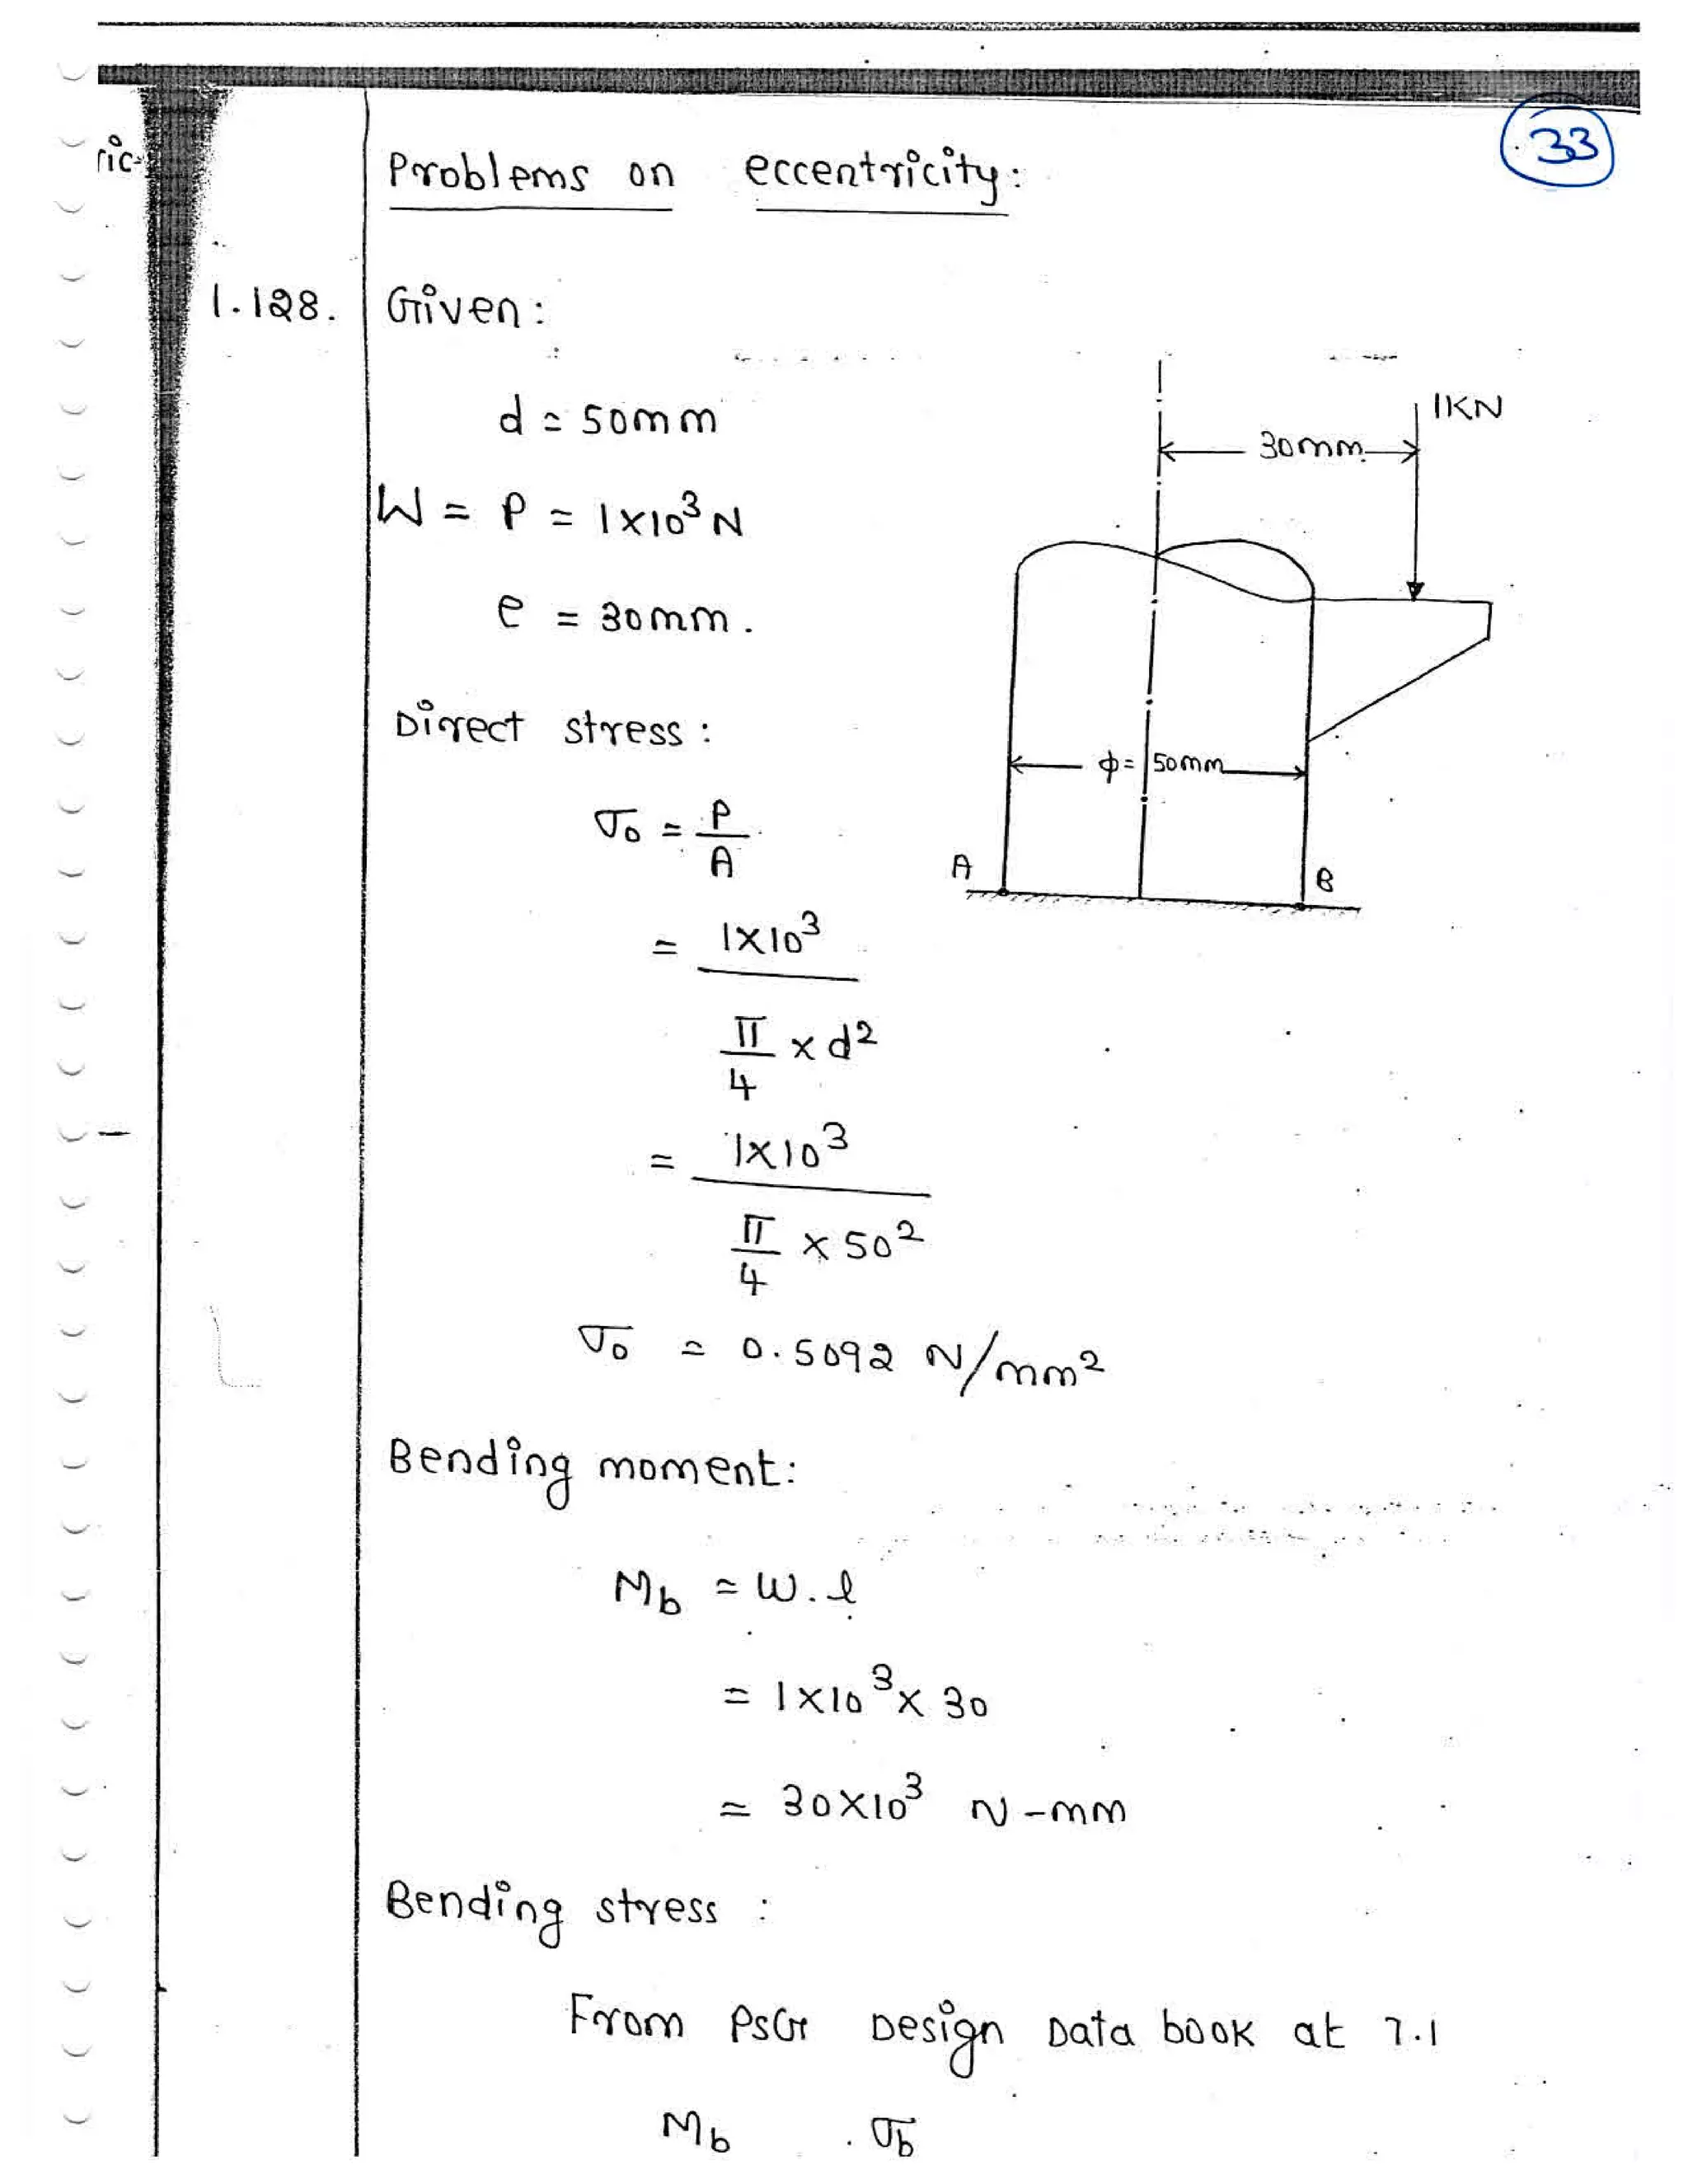 33
ric-
Problems on eccentricity:
1.128. Given:
d = 50mm
W = P = 1×10³ N
e = 30mm.
1KN
30mm
ϕ = 50mm
A
B
Direct stress:
σ₀ = P/A
= 1×10³
π/4 × d²
= 1×10³
π/4 × 50²
σ₀ = 0.5092 N/mm²
Bending moment:
Mb = W.l
= 1×10³ × 30
= 30×10³ N-mm
Bending stress :
From PSG Design Data book at 7.1
Mb σb